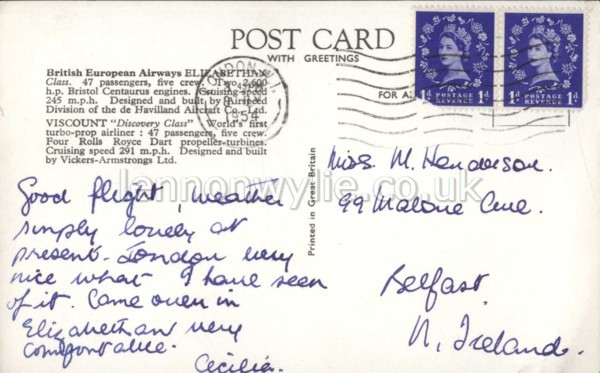 POST CARD
WITH GREETINGS
British European Airways ELIZABETHAN
Class. 47 passengers, five crew. Two 2,600
h.p. Bristol Centaurus engines. Cruising speed
245 m.p.h. Designed and built by Airspeed
Division of the de Havilland Aircraft Co., Ltd.
VISCOUNT "Discovery Class" World's first
turbo-prop airliner : 47 passengers, five crew.
Four Rolls Royce Dart propeller-turbines.
Cruising speed 291 m.p.h. Designed and built
by Vickers-Armstrongs Ltd.
LONDON
1954
FOR
POSTAGE
REVENUE
1d 1d
POSTAGE
REVENUE
1d 1d
Printed in Great Britain
Iannonwylie.co.uk
Good flight, weather
simply lovely at
present. London very
nice what I have seen
of it. Came over in
Elizabethan very
comfortable.
Cecilia.
Miss. M. Henderson.
99 Malone Ave.
Belfast.
N. Ireland.